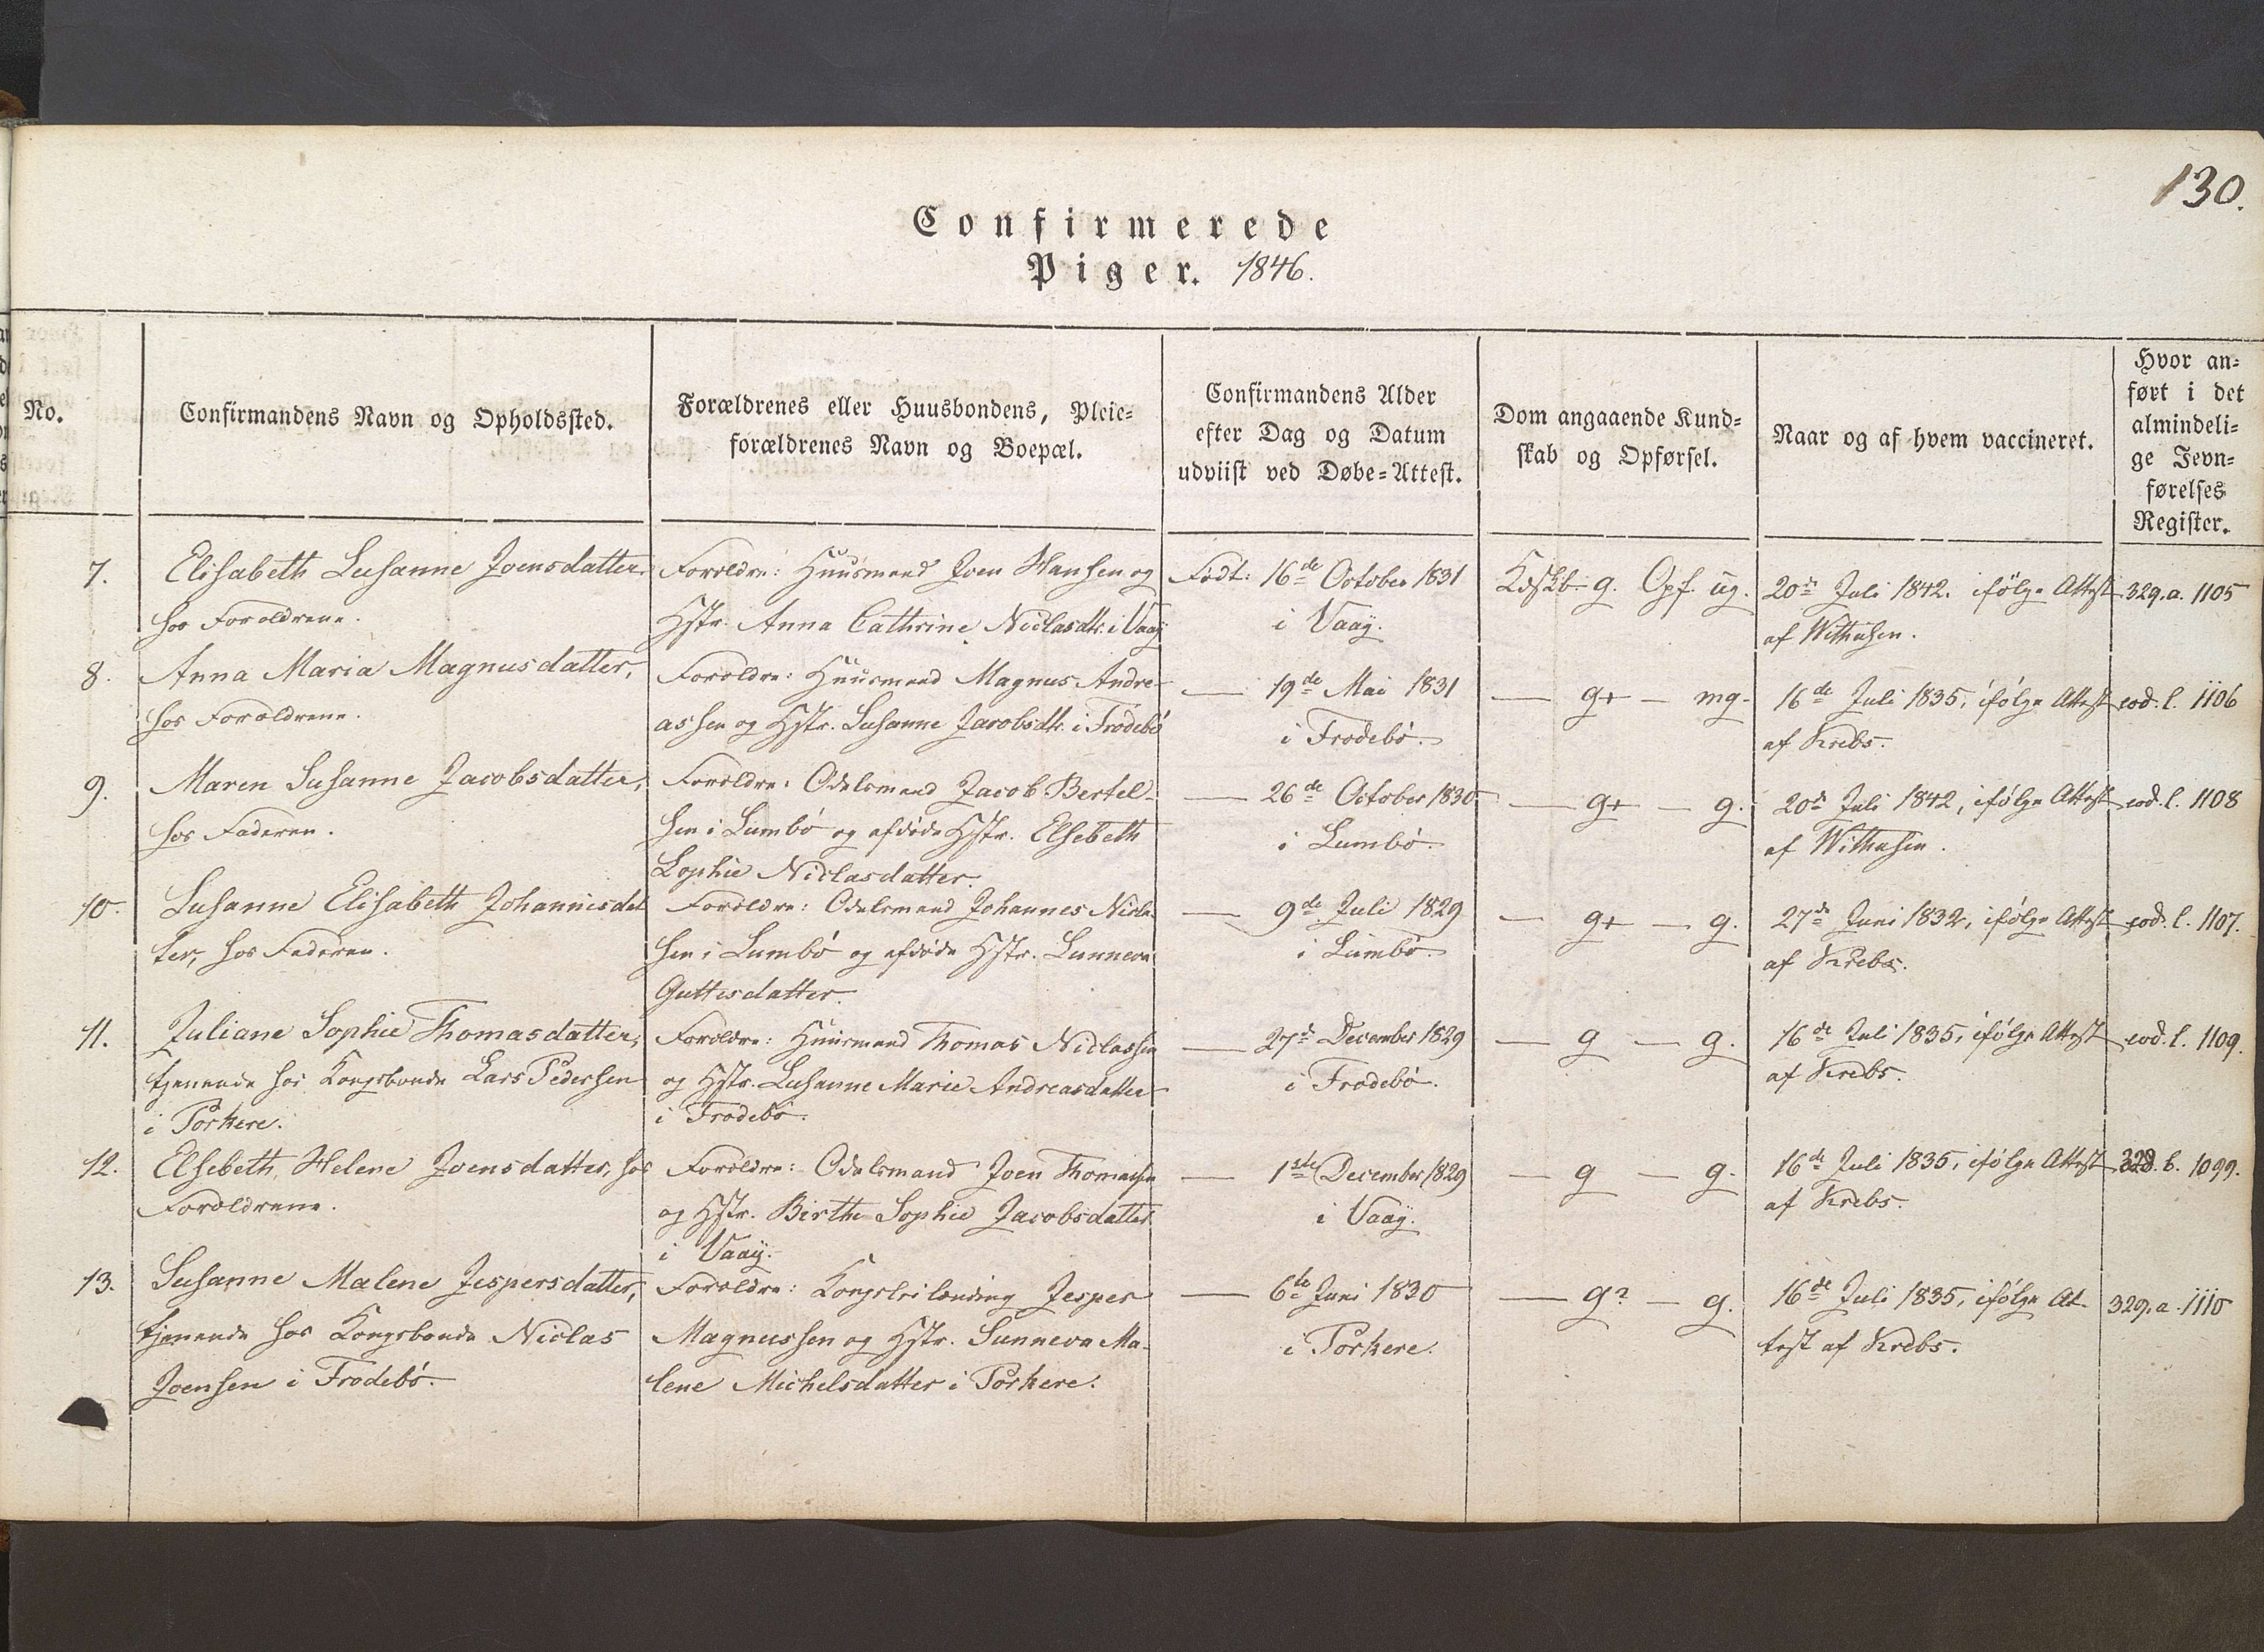 130.
Confirmerede
Piger. 1846.
No.
Confirmandens Navn og Opholdssted.
Forældrenes eller Huusbondens, Pleie=
forældrenes Navn og Boepæl.
Confirmandens Alder
efter Dag og Datum
udviist ved Døbe=Attest.
Dom angaaende Kund=
skab og Opførsel.
Naar og af hvem vaccineret.
Hvor an=
ført i det
almindeli=
ge Jevn=
førelses
Register.
7.
Elisabeth Susanne Joensdatter,
hos Forældrene.
Forældre: Huusmand Joen Hansen og
Hstr. Anna Cathrine Niclasdtr. i Vaag
Født: 16de October 1831
i Vaag.
Kdskb. g. Opf. ug.
20de Juli 1842. ifølge Attest
af Withusen.
329.a. 1105
8.
Anna Maria Magnusdatter,
hos Forældrene.
Forældre: Huusmand Magnus Andre-
assen og Hstr. Susanne Jacobsdtr. i Frodebö
— 19de Mai 1831
i Frodebö.
— g+ — mg.
16de Juli 1835, ifølge Attest
af Krebs.
eod. l. 1106
9.
Maren Susanne Jacobsdatter,
hos Faderen.
Forældre: Odelsmand Jacob Bertel-
sen i Sumbö og afdøde Hstr. Elsebeth
Sophie Niclasdatter.
— 26de October 1830
i Sumbö.
— g+ — g.
20de Juli 1842, ifølge Attest
af Withusen.
eod. l. 1108
10.
Susanne Elisabeth Johannesdat
ter, hos Faderen.
Forældre: Odelsmand Johannes Nicla-
sen i Sumbö og afdøde Hstr. Sunneva
Guttesdatter.
— 9de Juli 1829
i Sumbö.
— g+ — g.
27de Juni 1832, ifølge Attest
af Krebs.
eod. l. 1107.
11.
Juliane Sophie Thomasdatter,
tjenende hos Kongsbonde Lars Pedersen
i Porkere.
Forældre: Huusmand Thomas Niclassen
og Hstr. Susanne Marie Andreasdatter
i Frodebö.
— 27de December 1829
i Frodebö.
— g — g.
16de Juli 1835, ifølge Attest
af Krebs.
eod. l. 1109.
12.
Elsebeth Helene Joensdatter, hos
Forældrene.
Forældre: Odelsmand Joen Thomasen
og Hstr. Birthe Sophie Jacobsdatter
i Vaag.
— 1ste December 1829
i Vaag.
— g — g.
16de Juli 1835, ifølge Attest
af Krebs.
328. b. 1099.
13.
Susanne Malene Jespersdatter,
tjenende hos Kongsbonde Niclas
Joensen i Frodebö.
Forældre: Kongsleilænding Jesper
Magnussen og Hstr. Sunneva Ma-
lene Michelsdatter i Porkere.
— 6te Juni 1830
i Porkere.
— g? — g.
16de Juli 1835, ifølge At-
test af Krebs.
329. a. 1110